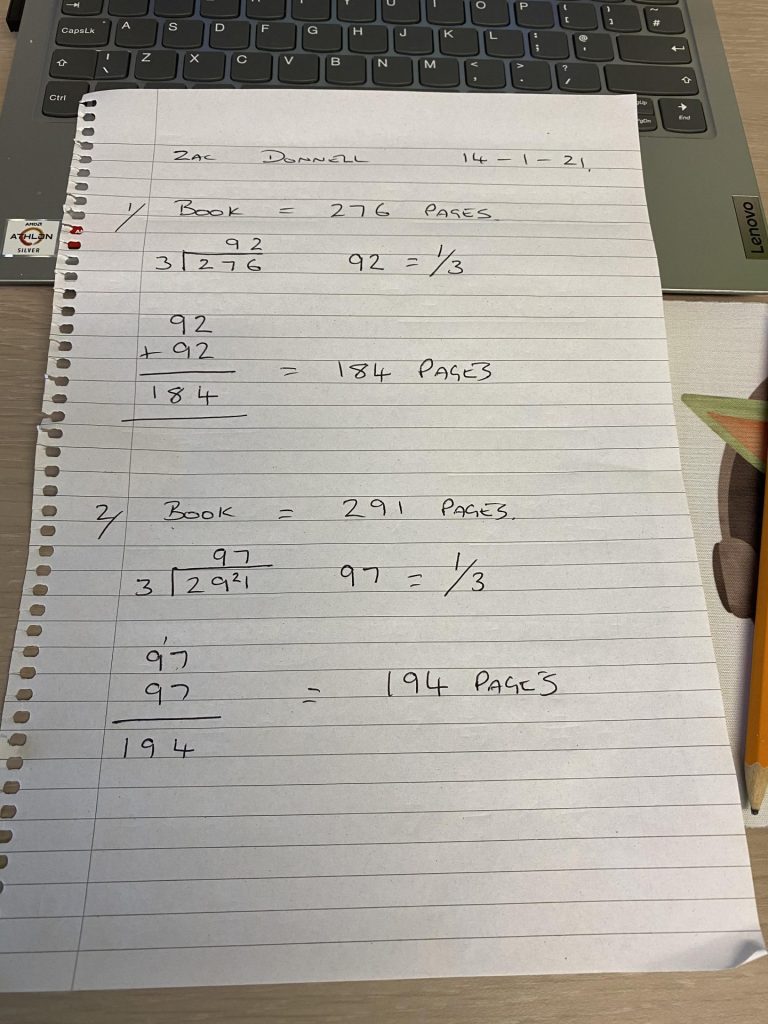 U I O P { [ } ] ~ #
CapsLk A S D F G H J K L : ; @ '
| \ Z X C V B N M < , > . ? /
Ctrl PgUp PgDn End
AMD
ATHLON
SILVER
Lenovo
ZAC DONNELL 14-1-21.
1/ BOOK = 276 PAGES.
92
3 276 92 = 1/3
92
+ 92
= 184 PAGES
184
2/ BOOK = 291 PAGES.
97
3 29²1 97 = 1/3
1
97
97 = 194 PAGES
194